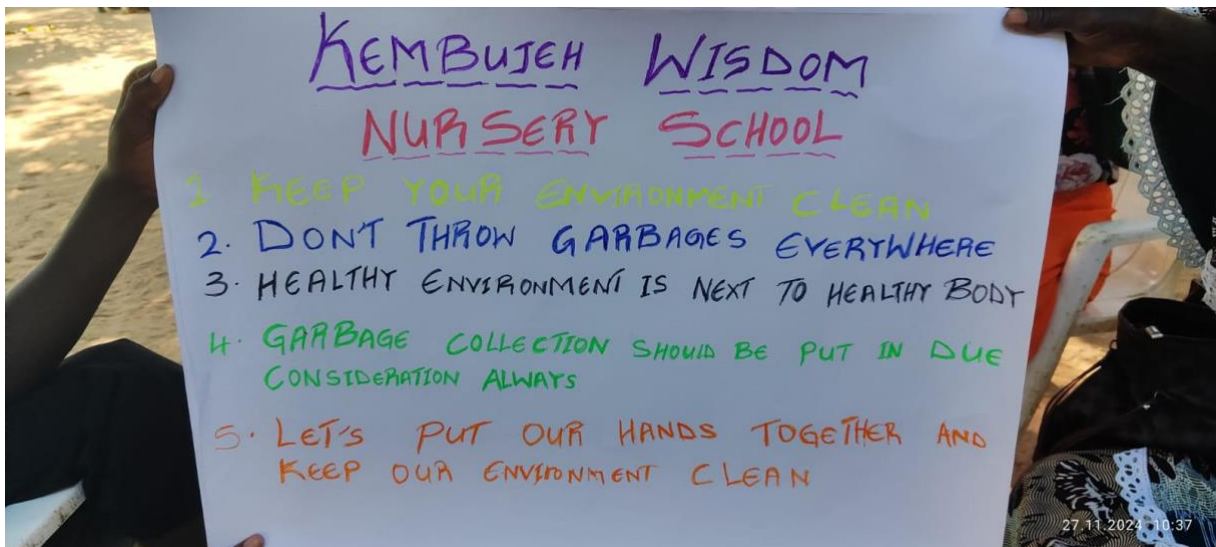 KEMBUJEH WISDOM
NURSERY SCHOOL
1 KEEP YOUR ENVIRONMENT CLEAN
2. DON'T THROW GARBAGES EVERYWHERE
3. HEALTHY ENVIRONMENT IS NEXT TO HEALTHY BODY
4. GARBAGE COLLECTION SHOULD BE PUT IN DUE
CONSIDERATION ALWAYS
5. LET'S PUT OUR HANDS TOGETHER AND
KEEP OUR ENVIRONMENT CLEAN
27.11.2024 10:37